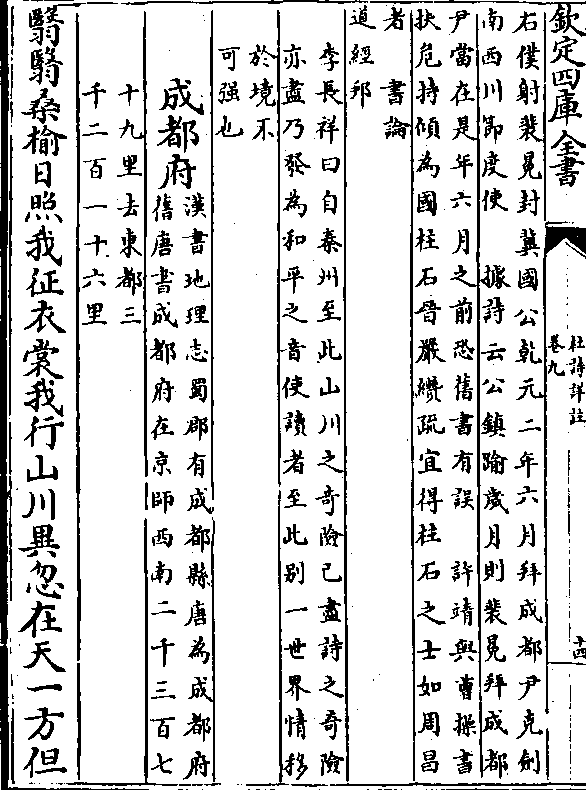 欽定四庫全書
杜詩詳註
卷九
十四
右僕射裴冕封冀國公乾元二年六月拜成都尹充劍
南西川節度使　據詩云公鎮踰歲月則裴冕拜成都
尹當在是年六月之前恐舊書有誤　許靖與曹操書
扶危持傾為國柱石晉嚴纘疏宜得柱石之士如周昌
者　書論
道經邦
李長祥曰自秦州至此山川之奇險已盡詩之奇險
亦盡乃發為和平之音使讀者至此别一世界情移
於境不
可强也
成都府
漢書地理志蜀郡有成都縣唐為成都府
舊唐書成都府在京師西南二千三百七
十九里去東都三
千二百一十六里
翳翳桑榆日照我征衣裳我行山川異忽在天一方但